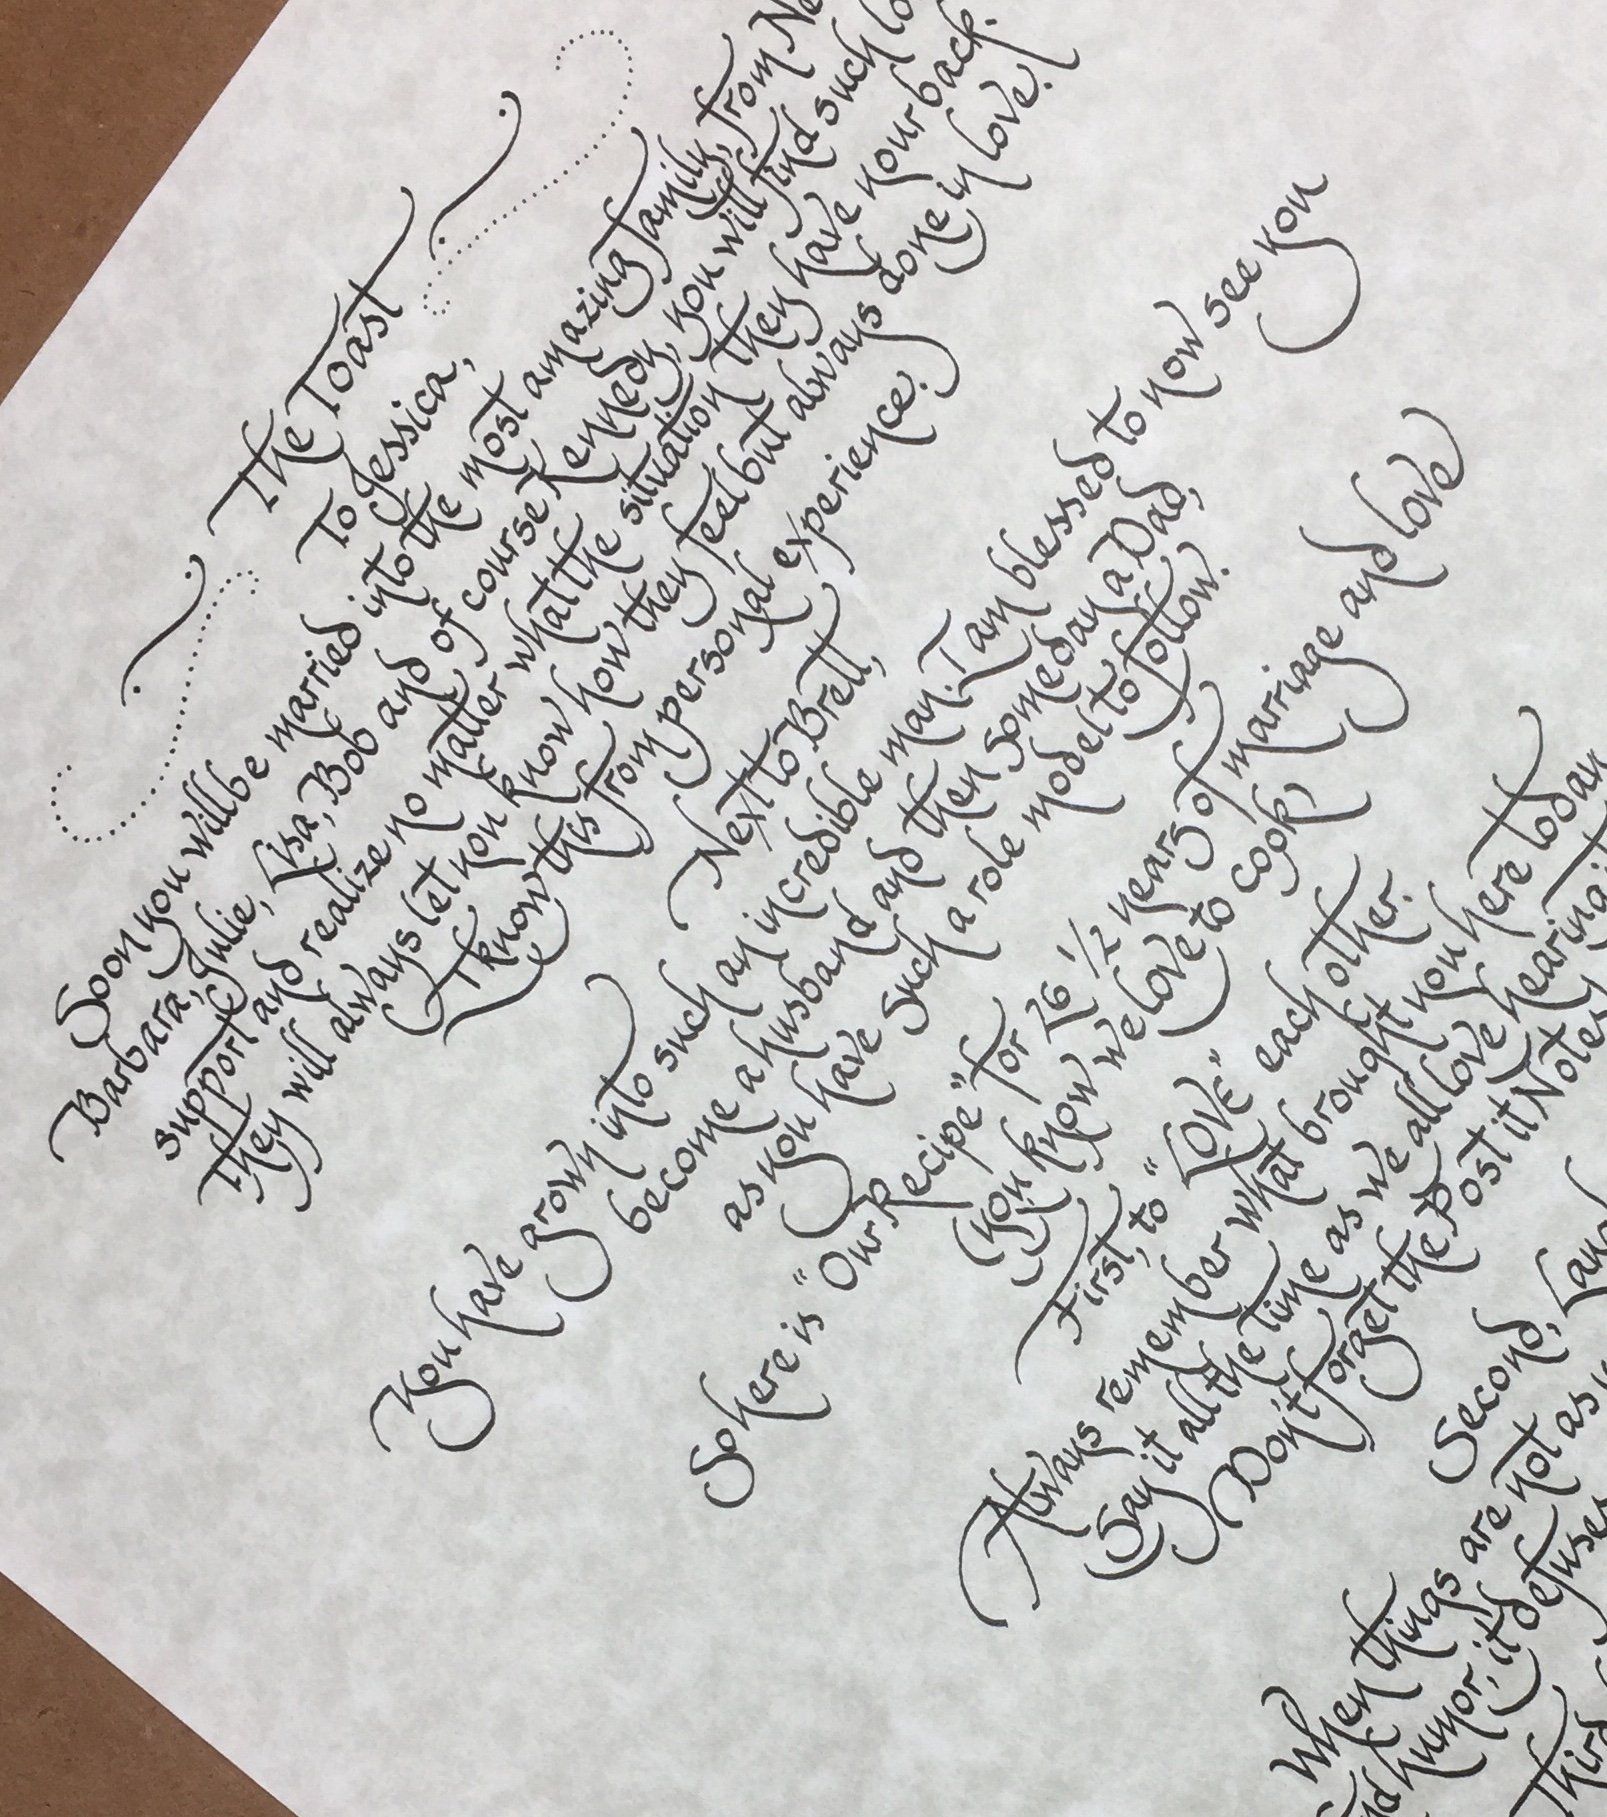 The Toast
To Jessica,
Soon you will be married into the most amazing family, from
Barbara, Julie, Lisa, Bob and of course Kennedy, you will find such
support and realize no matter what the situation they have your back.
They will always let you know how they feel but always done in love.
I know this from personal experience.
Next to Brett,
You have grown into such an incredible man. I am blessed to now see you
become a husband and then Someday a Dad,
as you have such a role model to follow.
So here is "Our Recipe" for 26 1/2 years of marriage and love
(you know we love to cook)
First, to "LOVE" each other.
Always remember what brought you here today
(Say it all the time as we all love hearing it
Don't forget the Post it Notes
Second,
When things are not as
humor, it defuses
Third